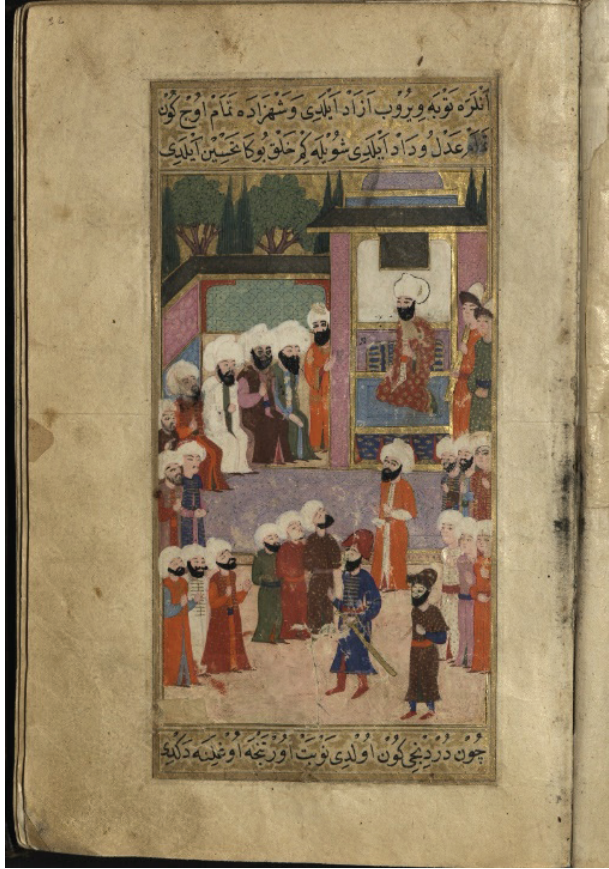 انلره توبه ویروب ازاد ایلدی و شهزاده تمام اوج کون
عدل و داد ایلدی شویله کم خلق بوکا تحسین ایلدی
چون دردنجی کون اولدی نوبت اورتنجه اوغلینه دکدی